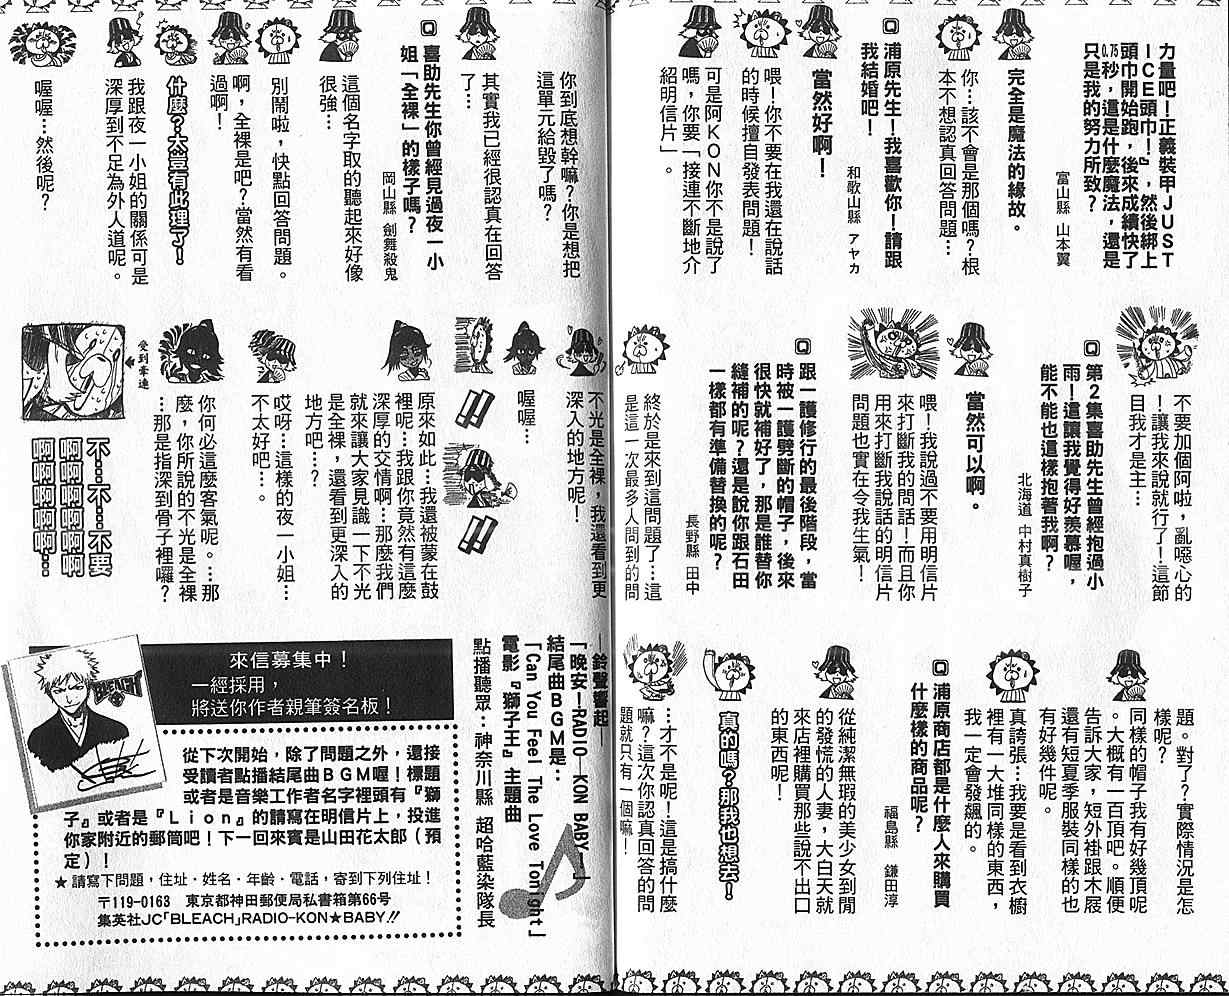 力量吧！正義裝甲ＪＵＳＴ
ＩＣＥ頭巾！』，然後綁上
頭巾開始跑，後來成績快了
0.75秒，這是什麼魔法，還是
只是我的努力所致？
富山縣　山本翼
完全是魔法的緣故。
你…該不會是那個嗎？根
本不想認真回答問題…
Q 浦原先生！我喜歡你！請跟
我結婚吧！
和歌山縣　アヤカ
當然好啊！
喂！你不要在我還在說話
的時候擅自發表問題！
可是阿ＫＯＮ你不是說了
嗎，你要「接連不斷地介
紹明信片」。
不要加個阿啦，亂噁心的
！讓我來說就行了！這節
目我才是主…
Q 第2集喜助先生曾經抱過小
雨！這讓我覺得好羨慕喔，
能不能也這樣抱著我啊？
北海道　中村真樹子
當然可以啊。
喂！我說過不要用明信片
來打斷我的問話！而且你
用來打斷我說話的明信片
問題也實在令我生氣！
Q 跟一護修行的最後階段，當
時被一護劈斷的帽子，後來
很快就補好了，那是誰替你
縫補的呢？還是說你跟石田
一樣都有準備替換的呢？
長野縣　田中
終於是來到這問題了…這
是這一次最多人問到的問
題。對了？實際情況是怎
樣呢？
同樣的帽子我有好幾頂呢
。大概有一百頂吧。順便
告訴大家，短外褂跟木屐
還有短夏季服裝同樣的也
有好幾件呢。
真誇張…我要是看到衣櫥
裡有一大堆同樣的東西，
我一定會發飆的。
Q 浦原商店都是什麼人來購買
什麼樣的商品呢？
福島縣　鎌田淳
從純潔無瑕的美少女到閒
的發慌的人妻，大白天就
來店裡購買那些說不出口
的東西呢！
真的嗎？那我也想去！
…才不是呢！這是搞什麼
嘛？這次你認真回答的問
題就只有一個嘛！
你到底想幹嘛？你是想把
這單元給毀了嗎？
其實我已經很認真在回答
了…
Q 喜助先生你曾經見過夜一小
姐「全裸」的樣子嗎？
岡山縣　劍舞殺鬼
這個名字取的聽起來好像
很強…
別鬧啦，快點回答問題。
啊，全裸是吧？當然有看
過啊！
什麼？太豈有此理了！
我跟夜一小姐的關係可是
深厚到不足為外人道呢。
喔喔…然後呢？
不光是全裸，我還看到更
深入的地方呢！
喔喔…
!!
!!
原來如此…我還被蒙在鼓
裡呢…我跟你竟然有這麼
深厚的交情啊…那麼我們
就來讓大家見識一下不光
是全裸，還看到更深入的
地方吧…？
哎呀…這樣的夜一小姐…
不太好吧…。
你何必這麼客氣呢。…那
麼，你所說的不光是全裸
…那是指深到骨子裡囉？
受到牽連
不…不…不要
啊啊啊啊啊啊
啊啊啊啊啊…
—鈴聲響起—
「晚安—RADIO—KON BABY—」
結尾曲ＢＧＭ是…
「Can You Feel The Love Tonight」
電影『獅子王』主題曲
點播聽眾…神奈川縣　超哈藍染隊長
來信募集中！
一經採用，
將送你作者親筆簽名板！
BLEACH
從下次開始，除了問題之外，還接
受讀者點播結尾曲ＢＧＭ喔！標題
或者是音樂工作者名字裡頭有『獅
子』或者是『Ｌｉｏｎ』的請寫在明信片上，投進
你家附近的郵筒吧！下一回來賓是山田花太郎（預
定）！
★請寫下問題，住址．姓名．年齡．電話，寄到下列住址！
〒119-0163　東京都神田郵便局私書箱第66号
集英社JC「BLEACH」RADIO-KON★BABY.!!